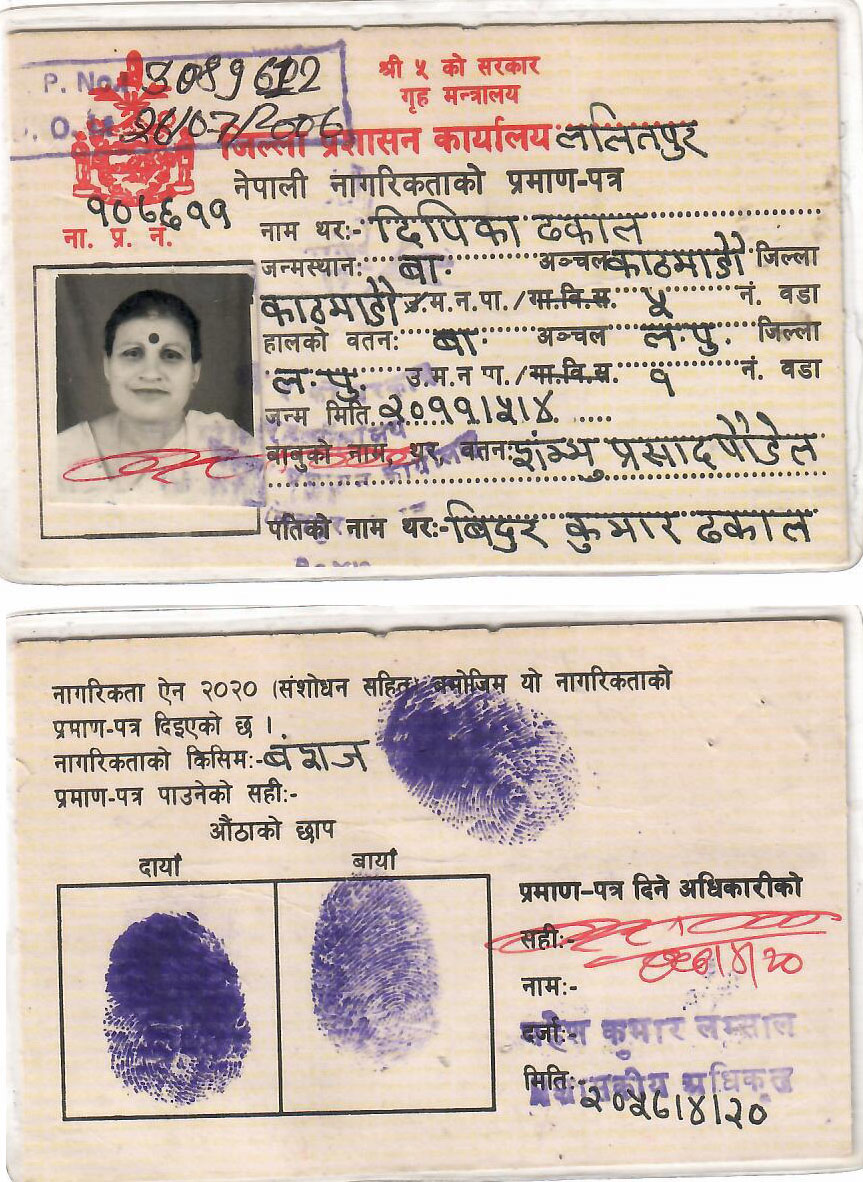 P. No. 3089612
26/07/2006
श्री ५ को सरकार
गृह मन्त्रालय
जिल्ला प्रशासन कार्यालय ललितपुर
नेपाली नागरिकताको प्रमाण-पत्र
ना. प्र. नं.
नाम थर:- दिपिका ढकाल
जन्मस्थान: बा. अञ्चल काठमाडौं जिल्ला
काठमाडौं उ.म.न.पा./गा.वि.स. ५ नं. वडा
हालको वतन: बा. अञ्चल ल.पु. जिल्ला
ल.पु. उ.म.न पा./गा.वि.स. १ नं. वडा
जन्म मिति २०११।५।४
बाबुको नाम, थर, वतन: शंम्भु प्रसाद पौडेल
पतिको नाम थर:- बिदुर कुमार ढकाल
नागरिकता ऐन २०२० (संशोधन सहित) बमोजिम यो नागरिकताको
प्रमाण-पत्र दिइएको छ ।
नागरिकताको किसिम:- बंशज
प्रमाण-पत्र पाउनेको सही:-
औंठाको छाप
दायाँ बायाँ
प्रमाण-पत्र दिने अधिकारीको
सही:-
नाम:-
दर्जा:- कुमार लम्साल
मिति:- अधिकृत
२०५८।४।२०